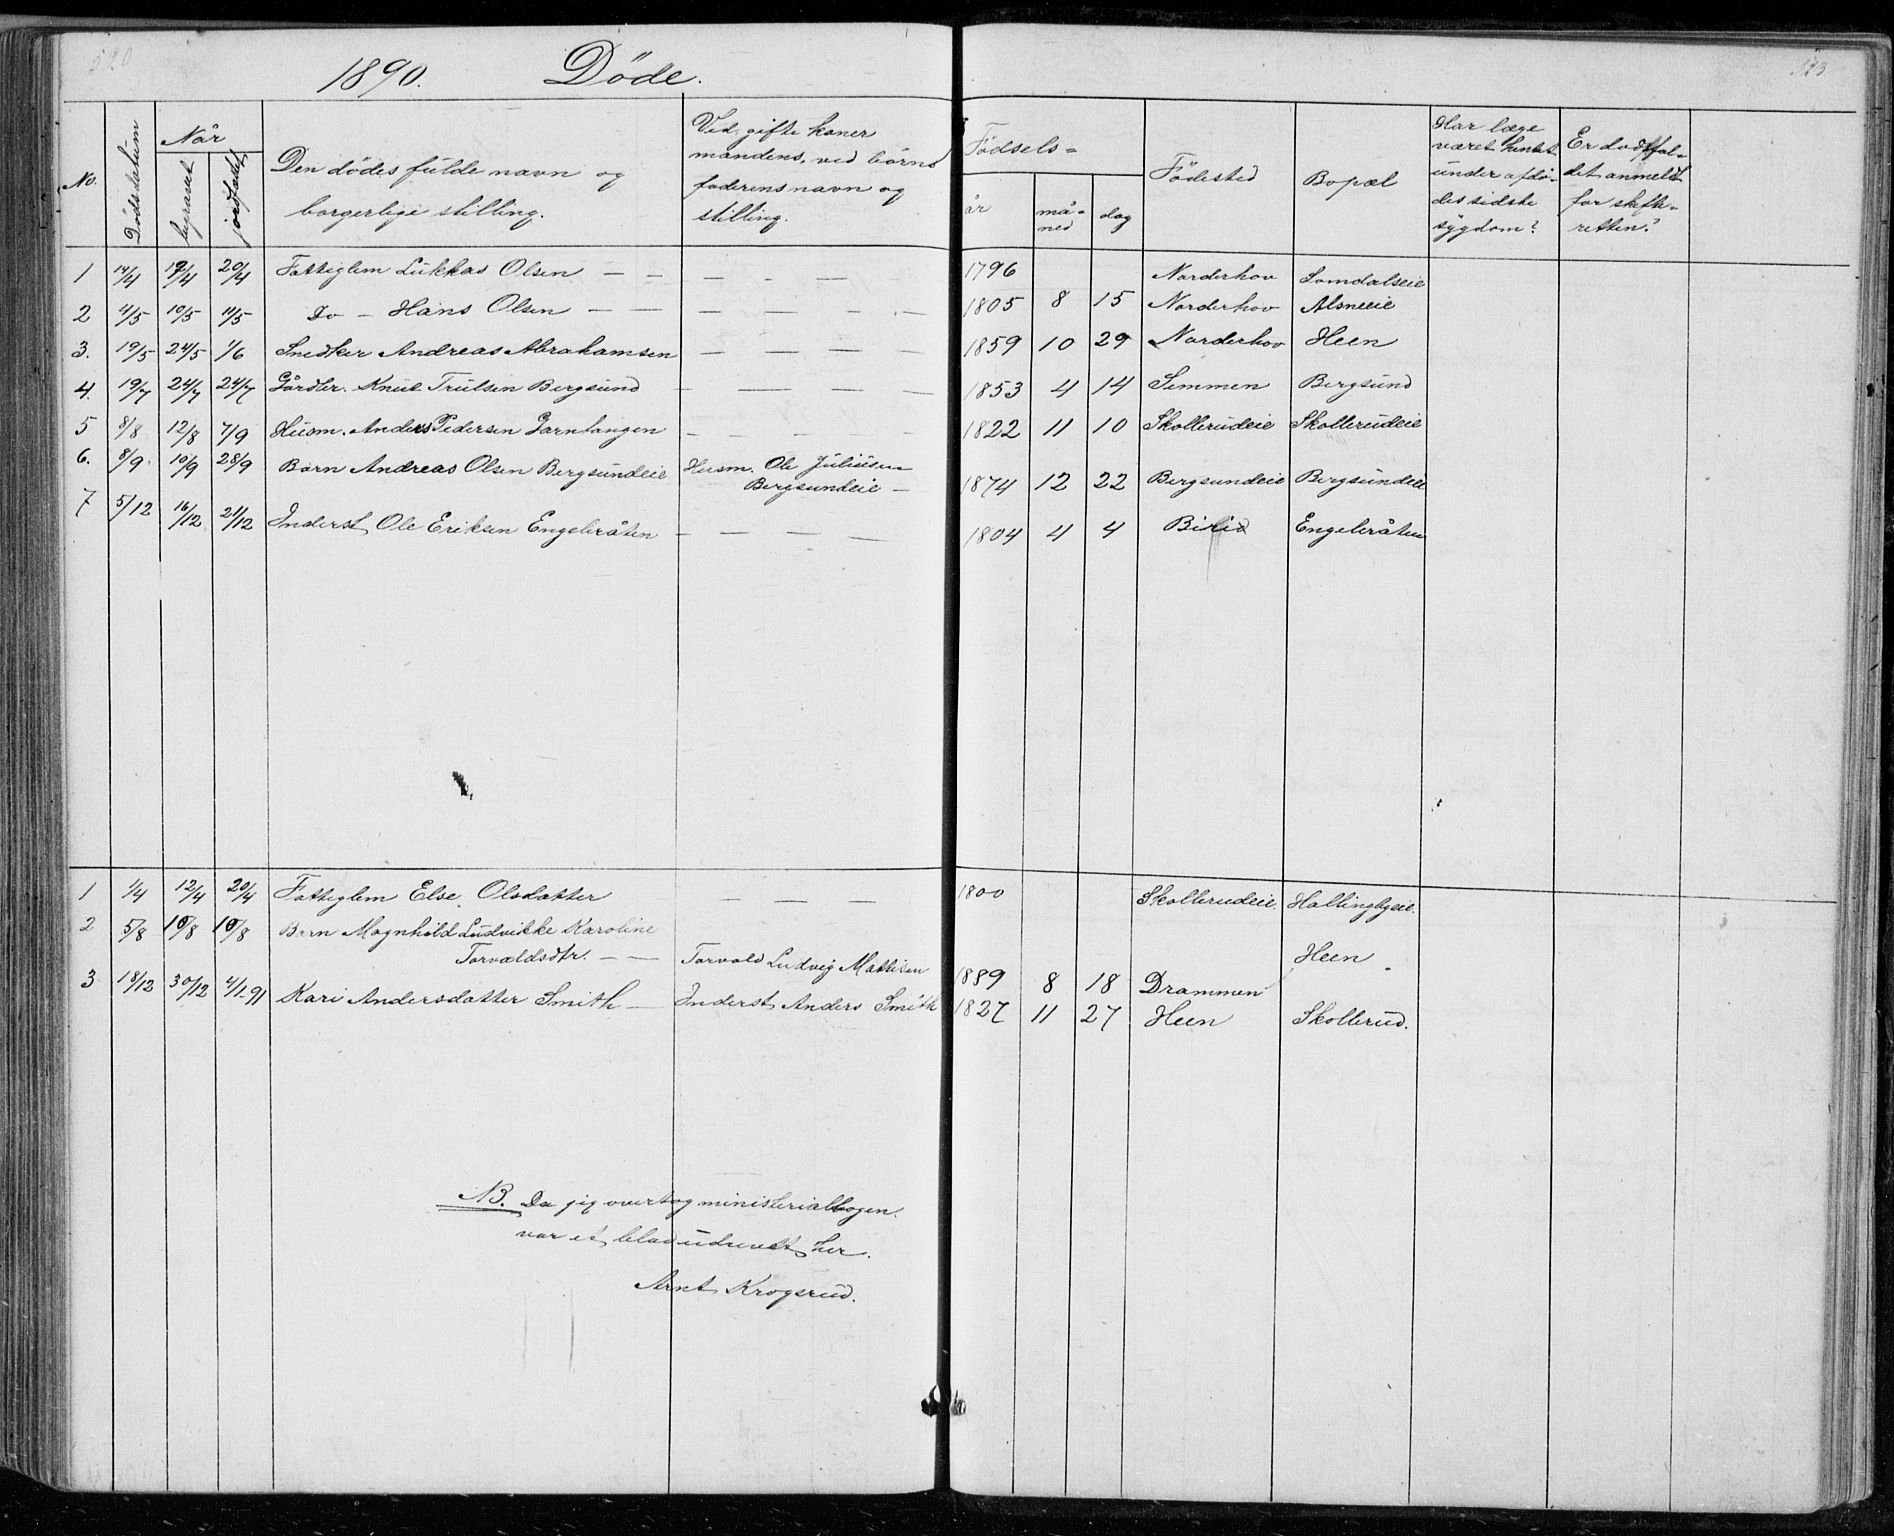 520
1890. Døde.
No. Dødsdatum Når begravet jordfæstet Den dødes fulde navn og borgerlige stilling. Ved gifte koner mandens, ved børns faderens navn og stilling. Fødsels= år måned dag Fødested Bopæl Har læge været hentet under afdødes sidste sygdom? Er dødsfaldet anmeldt for skifteretten?
1 14/4 19/4 20/4 Fattiglem Lukkas Olsen — — — — — 1796 Norderhov Somdalseie
2 4/5 10/5 11/5 Do — Hans Olsen — — — — — — 1805 8 15 Norderhov Alsneeie
3. 19/5 24/5 1/6 Snedker Andreas Abrahamsen — — — — 1859 10 29 Norderhov Heen
4. 19/7 24/7 24/7 Gårdbr. Knut Trulsen Bergsund — — — — 1853 4 14 Semmen Bergsund
5 8/8 12/8 7/9 Husm. Anders Pedersen Jarntangen — — — — — 1822 11 10 Skollerudeie Skollerudeie
6. 8/9 10/9 28/9 Barn Andreas Olsen Bergsundeie Husm. Ole Juliusen
Bergsundeie — 1874 12 22 Bergsundeie Bergsundeie
7 5/12 16/12 21/12 Inderst Ole Eriksen Engebråten — — — — 1804 4 4 Birid Engebråten
1 1/4 12/4 20/4 Fattiglem Else Olsdatter — — — 1800 Skollerudeie. Hallingbyeie.
2 5/8 10/8 10/8 Barn Magnhild Ludvikke Karoline
Torvaldsdtr. — — Torvald Ludvig Mathisen 1889 8 18 Drammen Heen
3 18/12 30/12 4/1-91 Kari Andersdatter Smith — Inderst Anders Smith 1827 11 27 Heen Skollerud.
NB. Da jeg overtog ministerialbogen.
var et blad udrevet her.
Arnt Krogsrud.